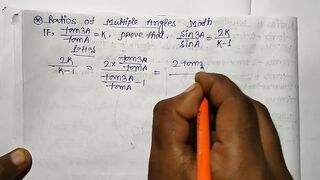 * Ratios of Multiple Angles Math
If, tan3A/tanA = K, prove that, sin3A/sinA = 2K/K-1
2K/K-1 = 2× tan3A/tanA / tan3A/tanA -1 = 2 tan3